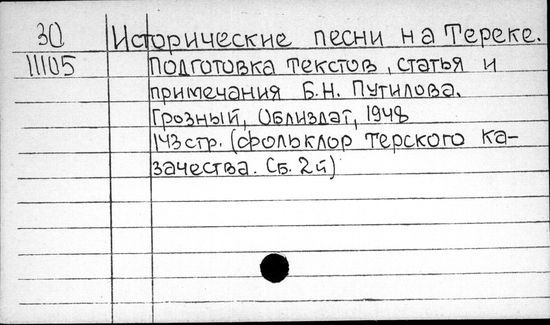 30 Исторические песни на Тереке.
11105 Подготовка текстов, статья и
примечания Б.Н. Путилова.
Грозный, Облиздат, 1948
143стр. (фольклор терского ка-
зачества. Сб. 2й)